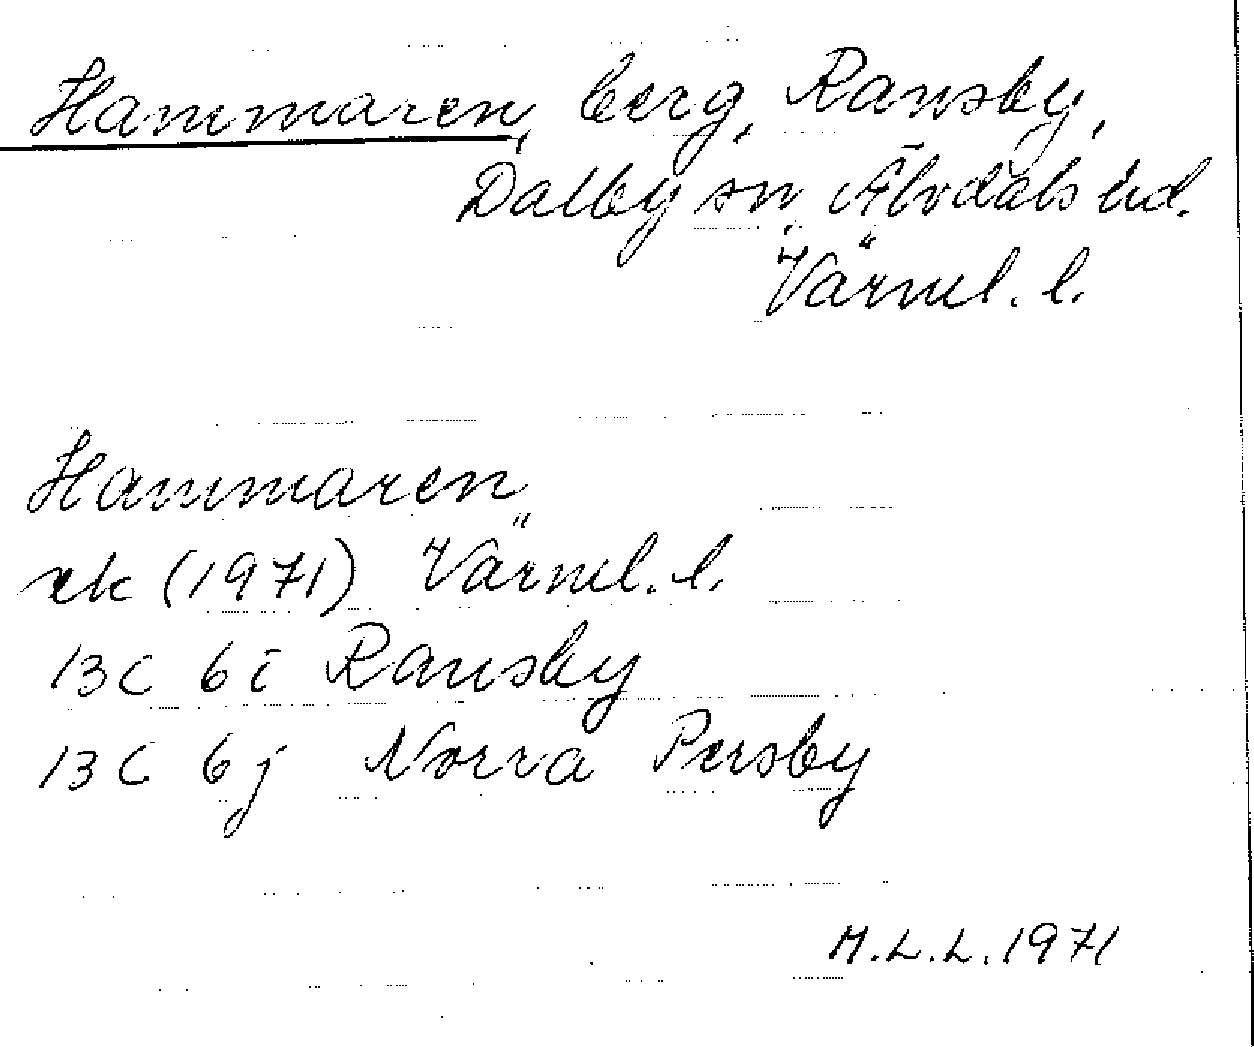 Hammaren, berg, Ransby,
Dalby sn, Älvdals hd.
Värml. l.
Hammaren
ek (1971) Värml. l.
13C 6i Ransby
13C 6j Norra Persby
M.L.L. 1971